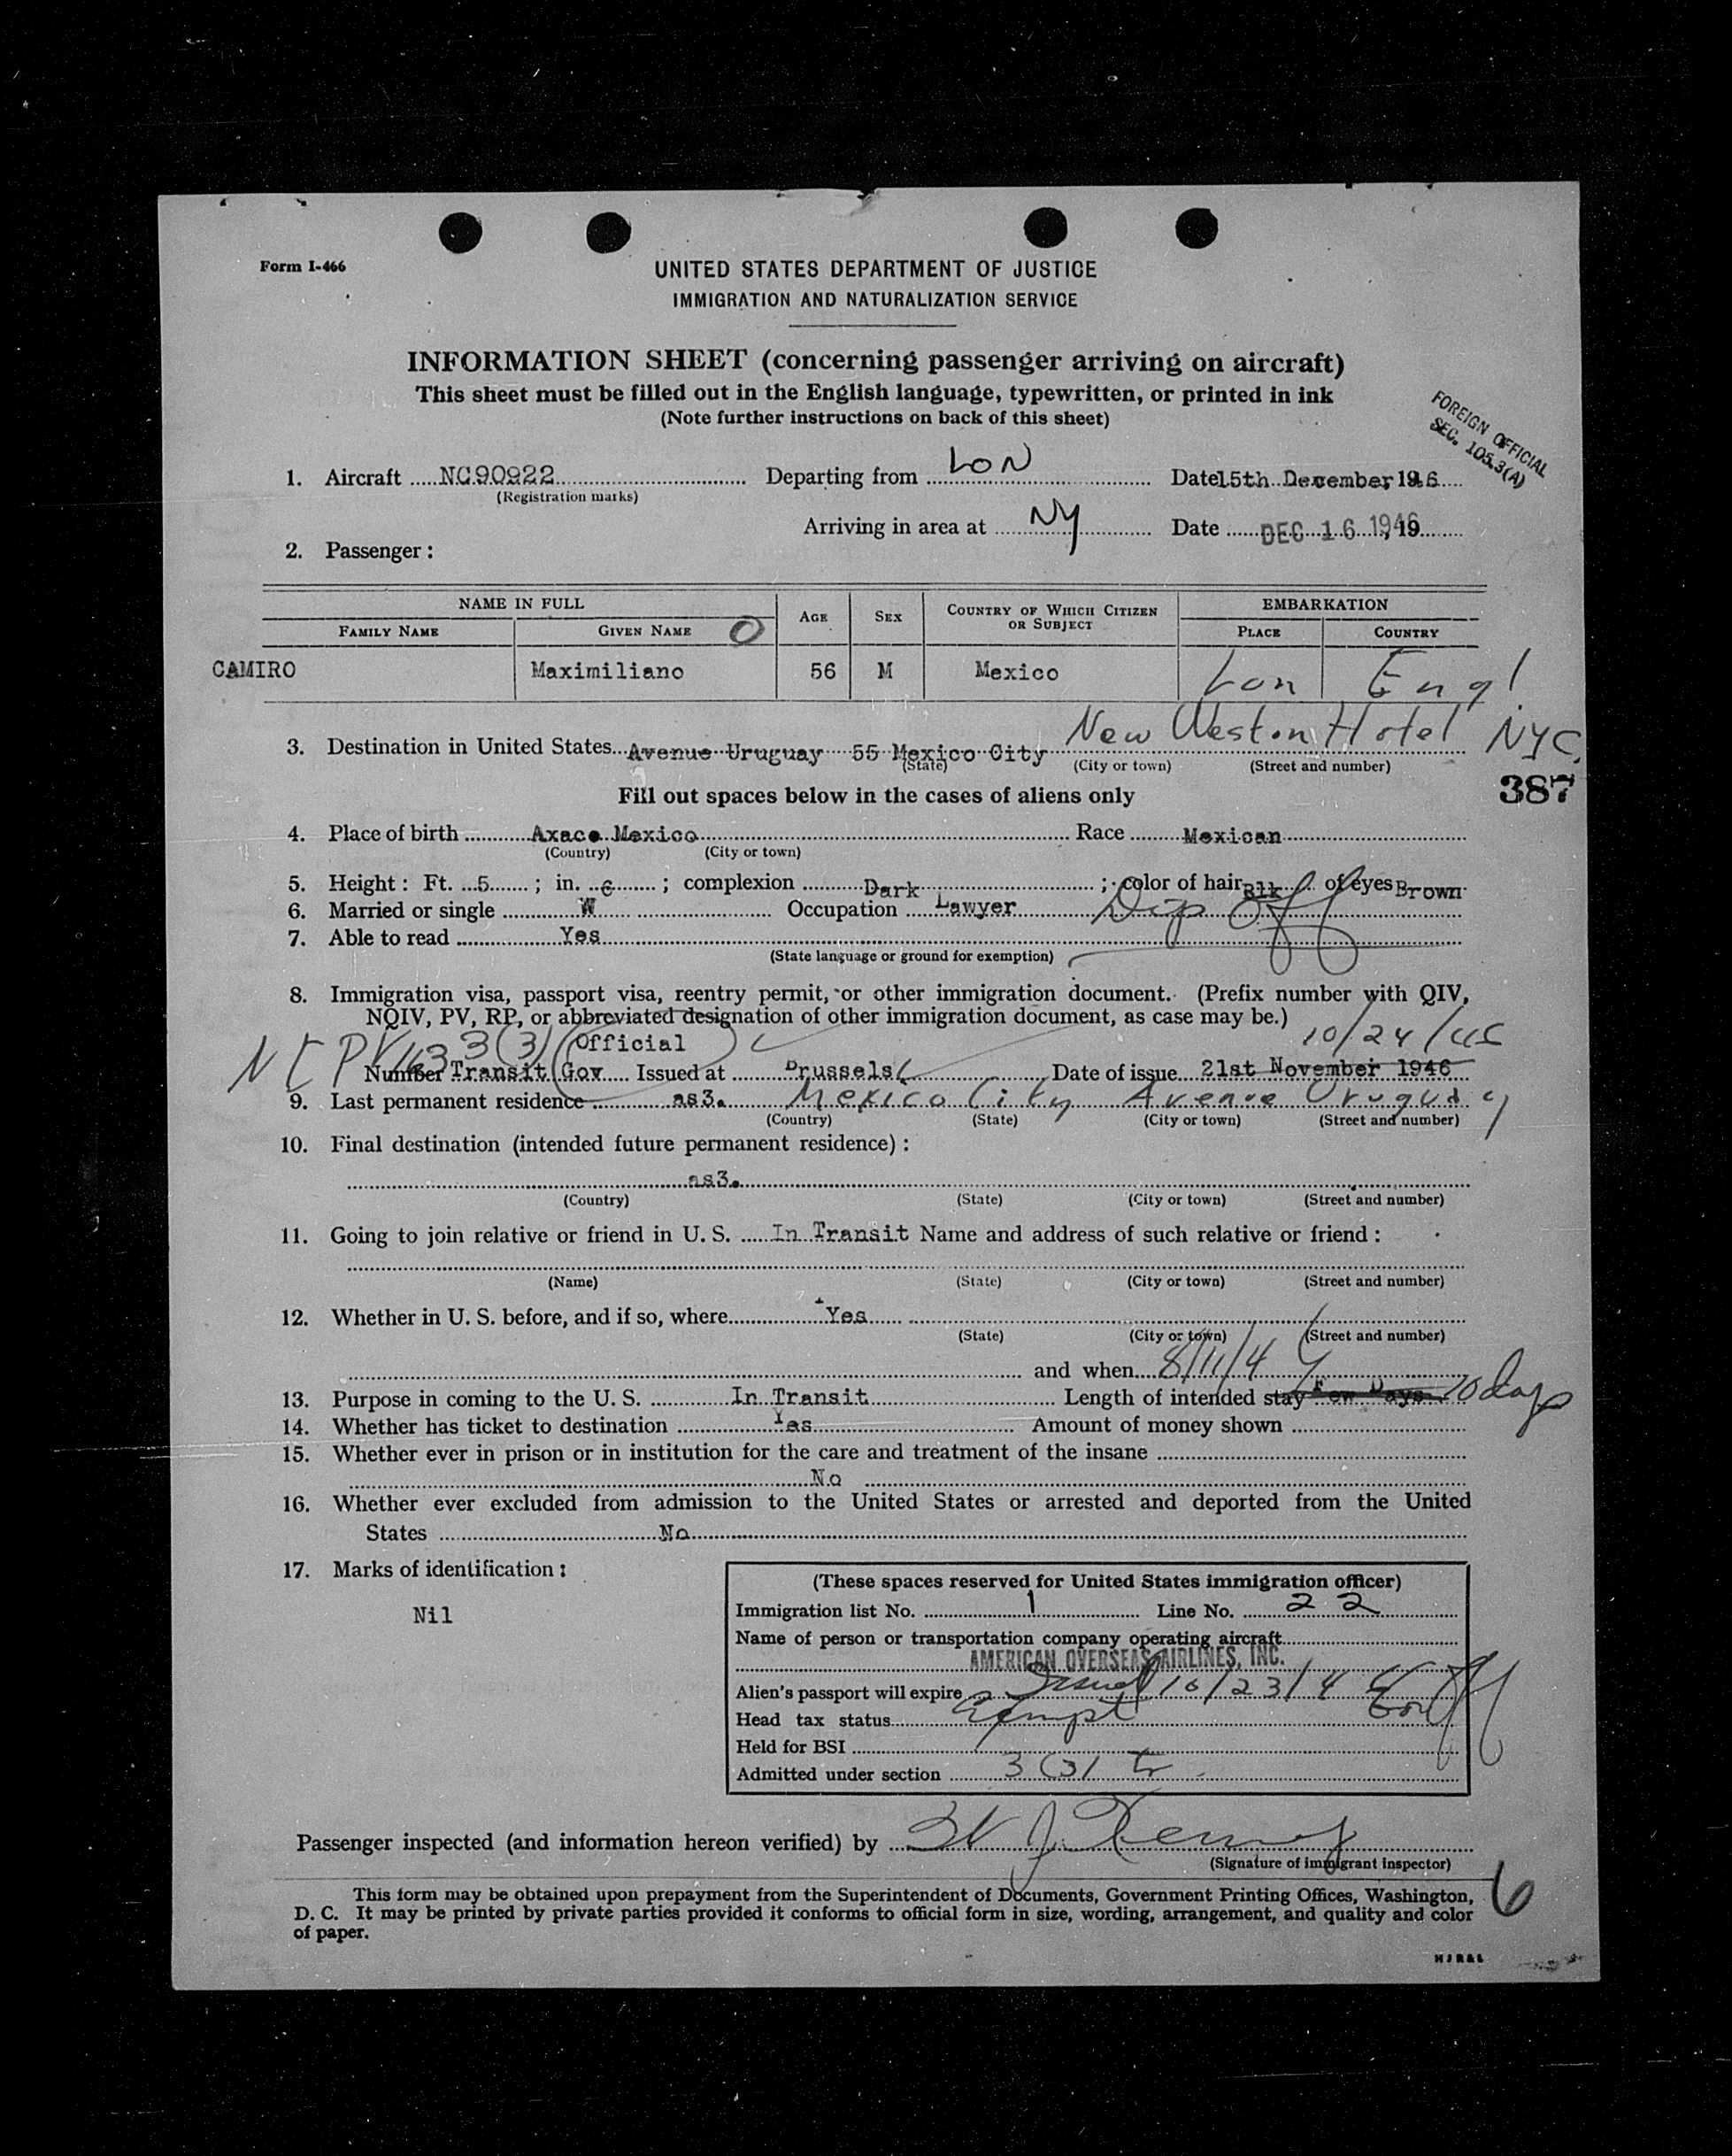 Form I-466
UNITED STATES DEPARTMENT OF JUSTICE
IMMIGRATION AND NATURALIZATION SERVICE
INFORMATION SHEET (concerning passenger arriving on aircraft)
This sheet must be filled out in the English language, typewritten, or printed in ink
(Note further instructions on back of this sheet)
FOREIGN OFFICIAL
SEC. 105.3(A)
1. Aircraft NC90922 Departing from LON Date 15th December, 1946
(Registration marks)
Arriving in area at NY Date DEC 16 1946, 19
2. Passenger:
NAME IN FULL AGE SEX COUNTRY OF WHICH CITIZEN OR SUBJECT EMBARKATION
FAMILY NAME GIVEN NAME O PLACE COUNTRY
CAMIRO Maximiliano 56 M Mexico Lon Engl
3. Destination in United States Avenue Uruguay 55 Mexico City New Weston Hotel NYC.
(State) (City or town) (Street and number)
387
Fill out spaces below in the cases of aliens only
4. Place of birth Axaco Mexico Race Mexican
(Country) (City or town)
5. Height: Ft. 5 ; in. 6 ; complexion Dark ; color of hair Blk of eyes Brown
6. Married or single W Occupation Lawyer Dip Off
7. Able to read Yes
(State language or ground for exemption)
8. Immigration visa, passport visa, reentry permit, or other immigration document. (Prefix number with QIV,
NQIV, PV, RP, or abbreviated designation of other immigration document, as case may be.)
3(3) Official 10/24/46
Number Transit Gov Issued at Brussels Date of issue 21st November 1946
9. Last permanent residence as3. Mexico City Avenue Uruguay
(Country) (State) (City or town) (Street and number)
10. Final destination (intended future permanent residence):
as3.
(Country) (State) (City or town) (Street and number)
11. Going to join relative or friend in U. S. In Transit Name and address of such relative or friend:
(Name) (State) (City or town) (Street and number)
12. Whether in U. S. before, and if so, where Yes
(State) (City or town) (Street and number)
and when 8/11/4
13. Purpose in coming to the U. S. In Transit Length of intended stay Few Days 10 days
14. Whether has ticket to destination Yes Amount of money shown
15. Whether ever in prison or in institution for the care and treatment of the insane
No
16. Whether ever excluded from admission to the United States or arrested and deported from the United
States No
17. Marks of identification:
Nil
(These spaces reserved for United States immigration officer)
Immigration list No. 1 Line No. 22
Name of person or transportation company operating aircraft
AMERICAN OVERSEAS AIRLINES, INC.
Alien's passport will expire Issued 10/23/46
Head tax status Exempt
Held for BSI
Admitted under section 3(3) Tr
Passenger inspected (and information hereon verified) by
(Signature of immigrant inspector)
This form may be obtained upon prepayment from the Superintendent of Documents, Government Printing Offices, Washington,
D. C. It may be printed by private parties provided it conforms to official form in size, wording, arrangement, and quality and color
of paper.
6